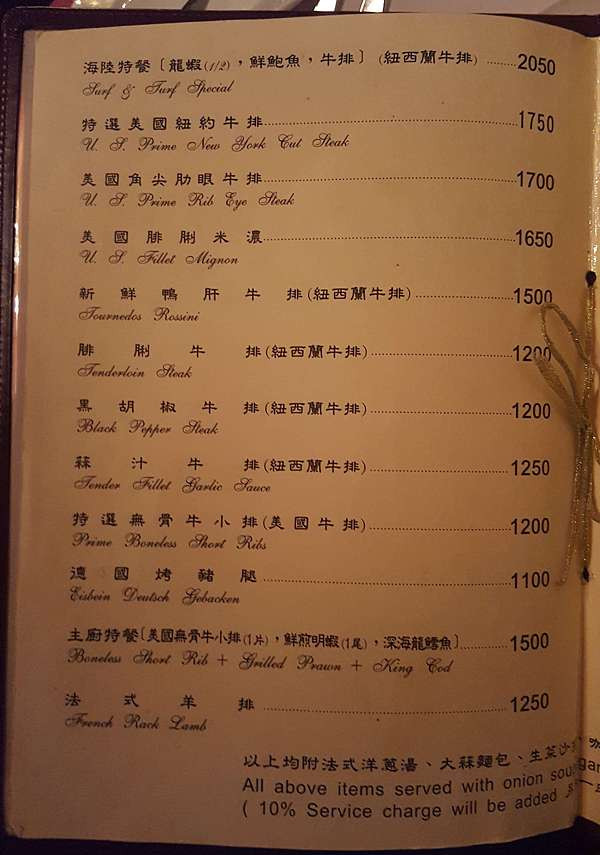 海陸特餐〔龍蝦(1/2)，鮮鮑魚，牛排〕(紐西蘭牛排) ........2050
Surf & Turf Special
特選美國紐約牛排........1750
U. S. Prime New York Cut Steak
美國角尖肋眼牛排........1700
U. S. Prime Rib Eye Steak
美國腓脷米濃........1650
U. S. Fillet Mignon
新鮮鴨肝牛排(紐西蘭牛排)........1500
Tournedos Rossini
腓脷牛排(紐西蘭牛排)........1200
Tenderloin Steak
黑胡椒牛排(紐西蘭牛排)........1200
Black Pepper Steak
蒜汁牛排(紐西蘭牛排)........1250
Tender Fillet Garlic Sauce
特選無骨牛小排(美國牛排)........1200
Prime Boneless Short Ribs
德國烤豬腿........1100
Eisbein Deutsch Gebacken
主廚特餐〔美國無骨牛小排(1片)，鮮煎明蝦(1尾)，深海龍鱈魚〕........1500
Boneless Short Rib + Grilled Prawn + King Cod
法式羊排........1250
French Rack Lamb
以上均附法式洋蔥湯、大蒜麵包、生菜沙
All above items served with onion soup
( 10% Service charge will be added